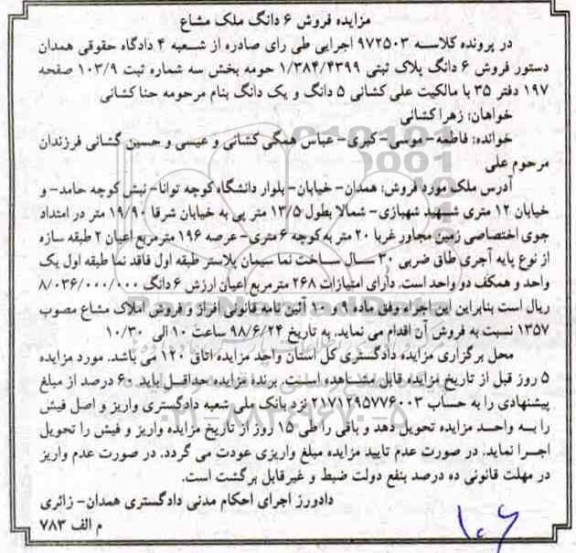 مزایده فروش ۶ دانگ ملک مشاع
در پرونده کلاسه ۹۷۲۵۰۳ اجرایی طی رای صادره از شعبه ۴ دادگاه حقوقی همدان
دستور فروش ۶ دانگ پلاک ثبتی ۱/۳۸۴/۴۳۹۹ حومه بخش سه شماره ثبت ۱۰۳/۹ صفحه
۱۹۷ دفتر ۳۵ با مالکیت علی کشانی ۵ دانگ و یک دانگ بنام مرحومه حنا کشانی
خواهان: زهرا کشانی
خوانده: فاطمه- موسی- کبری- عباس همگی کشانی و عیسی و حسین گشانی فرزندان
مرحوم علی
آدرس ملک مورد فروش: همدان- خیابان- بلوار دانشگاه کوچه توانا- نبش کوچه حامد- و
خیابان ۱۲ متری شهید شهبازی- شمالا بطول ۱۳/۵ متر پی به خیابان شرقا ۱۹/۹۰ متر در امتداد
جوی اختصاصی زمین مجاور غربا ۲۰ متر به کوچه ۶ متری- عرصه ۱۹۶ مترمربع اعیان ۲ طبقه سازه
از نوع پایه آجری طاق ضربی ۳۰ سال ساخت نما سیمان پلاستر طبقه اول فاقد نما طبقه اول یک
واحد و همکف دو واحد است. دارای امتیازات ۲۶۸ مترمربع اعیان ارزش ۶ دانگ ۸/۰۳۶/۰۰۰/۰۰۰
ریال است بنابراین این اجراء وفق ماده ۹ و ۱۰ آئین نامه قانونی افراز و فروش املاک مشاع مصوب
۱۳۵۷ نسبت به فروش آن اقدام می نماید. به تاریخ ۹۸/۶/۲۴ ساعت ۱۰ الی ۱۰/۳۰
محل برگزاری مزایده دادگستری کل استان واحد مزایده اتاق ۱۲۰ می باشد. مورد مزایده
۵ روز قبل از تاریخ مزایده قابل مشاهده است. برنده مزایده حداقل باید ۶۰ درصد از مبلغ
پیشنهادی را به حساب ۲۱۷۱۲۹۵۷۷۶۰۰۳ نزد بانک ملی شعبه دادگستری واریز و اصل فیش
را به واحد مزایده تحویل دهد و باقی را طی ۱۵ روز از تاریخ مزایده واریز و فیش را تحویل
اجرا نماید. در صورت عدم تایید مزایده مبلغ واریزی عودت می گردد. در صورت عدم واریز
در مهلت قانونی ده درصد بنفع دولت ضبط و غیرقابل برگشت است.
دادورز اجرای احکام مدنی دادگستری همدان- زائری
م الف ۷۸۳